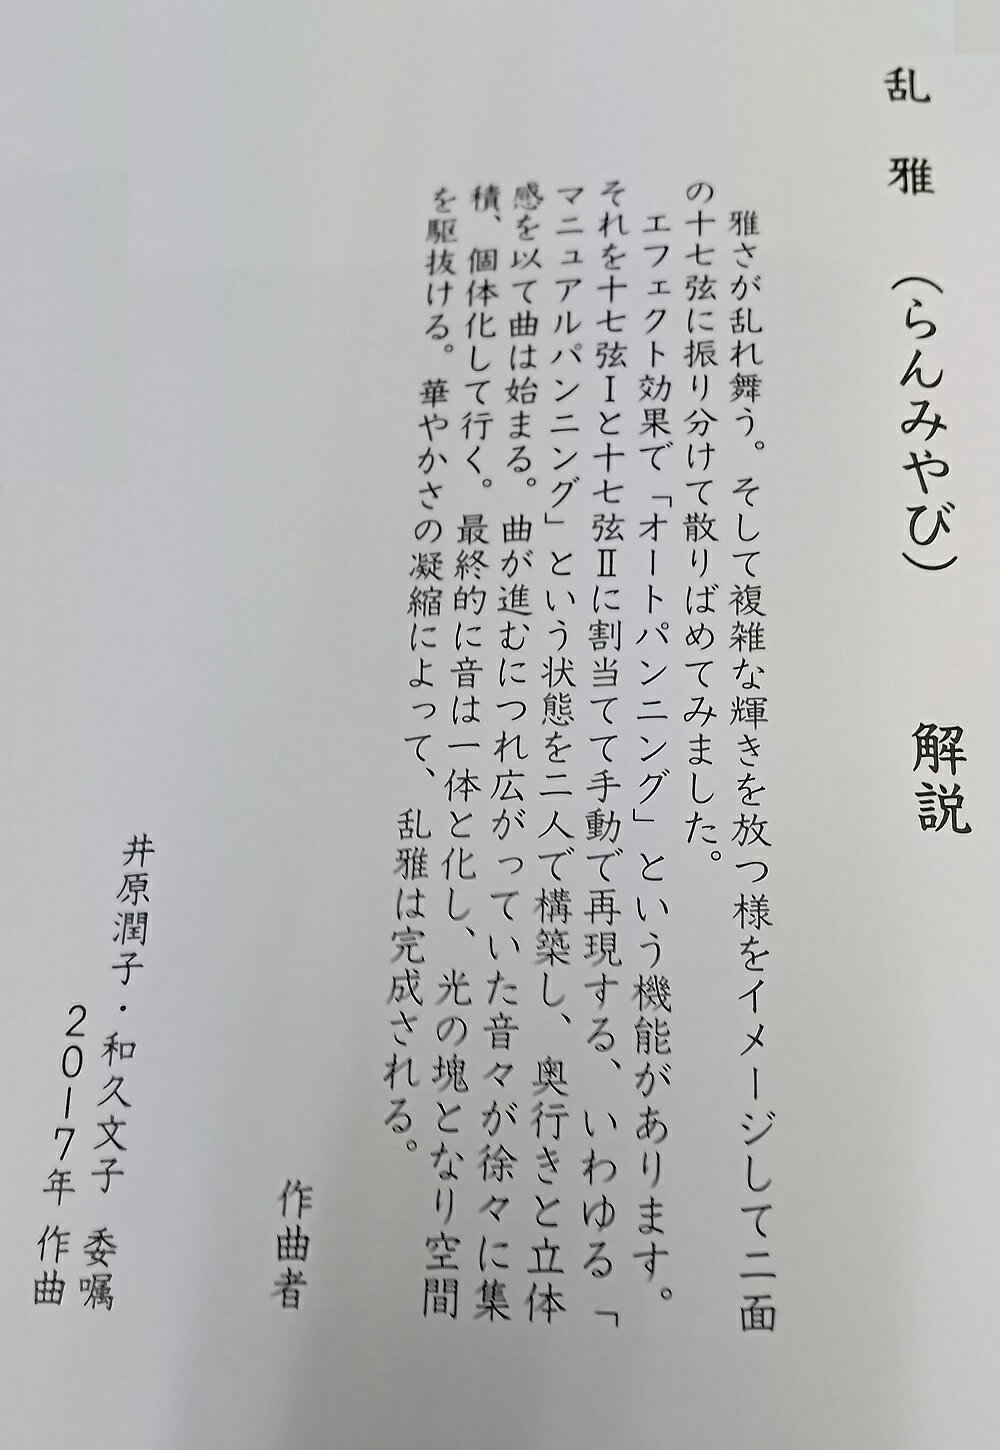 乱雅 (らんみやび) 解説
雅さが乱れ舞う。そして複雑な輝きを放つ様をイメージして二面
の十七弦に振り分けて散りばめてみました。
エフェクト効果で「オートパンニング」という機能があります。
それを十七弦Ⅰと十七弦Ⅱに割当てて手動で再現する、いわゆる「
マニュアルパンニング」という状態を二人で構築し、奥行きと立体
感を以て曲は始まる。曲が進むにつれ広がっていた音々が徐々に集
積、個体化して行く。最終的に音は一体と化し、光の塊となり空間
を駆抜ける。華やかさの凝縮によって、乱雅は完成される。
作曲者
井原潤子・和久文子 委嘱
2017年 作曲